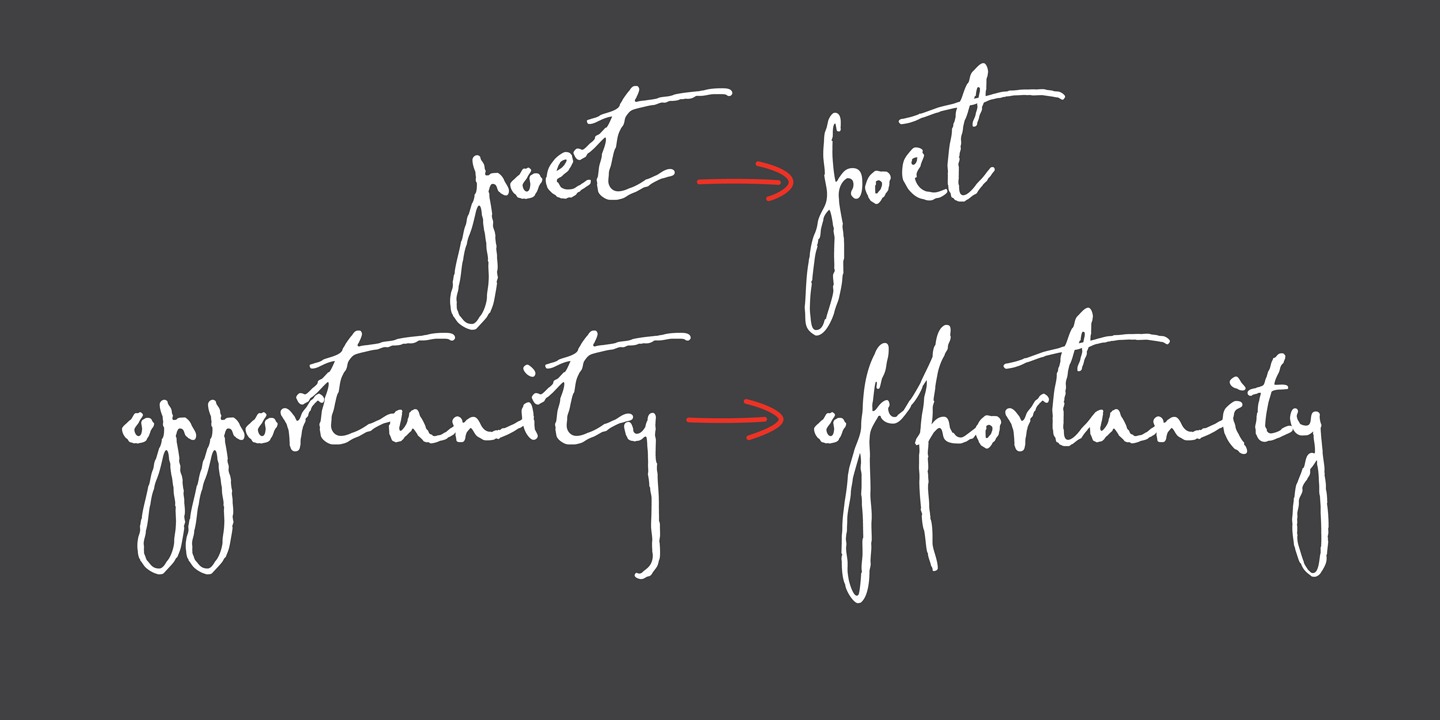 poet → poet
opportunity → opportunity